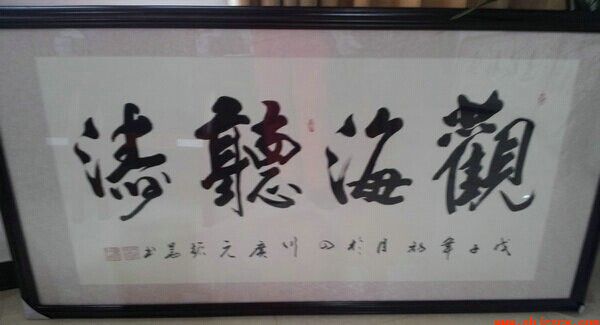 觀海聽濤
戊子年秋月於四川廣元書